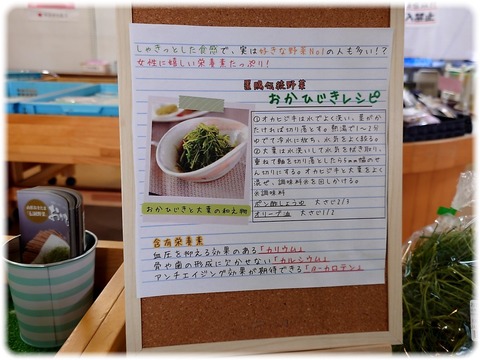 しゃきっとした食感で、実は好きな野菜No1の人も多い!?
女性に嬉しい栄養素たっぷり!
置賜伝統野菜
おかひじきレシピ
①オカヒジキは水でよく洗い、茎がか
たければ切り落とす。熱湯で1〜2分
ゆでて冷水に放ち、水気をよく絞る。
②大葉は水洗いして水気を拭き取り、
重ねて軸を切り落としたら5mm幅のせ
ん切りにする。オカヒジキと大葉をよく
混ぜ、調味料※を回しかける。
※調味料
ポン酢しょうゆ 大さじ2/3
オリーブ油 大さじ1/2
おかひじきと大葉の和え物
含有栄養素
血圧を抑える効果のある「カリウム」
骨や歯の形成に欠かせない「カルシウム」
アンチエイジング効果が期待できる「β-カロテン」
入禁止